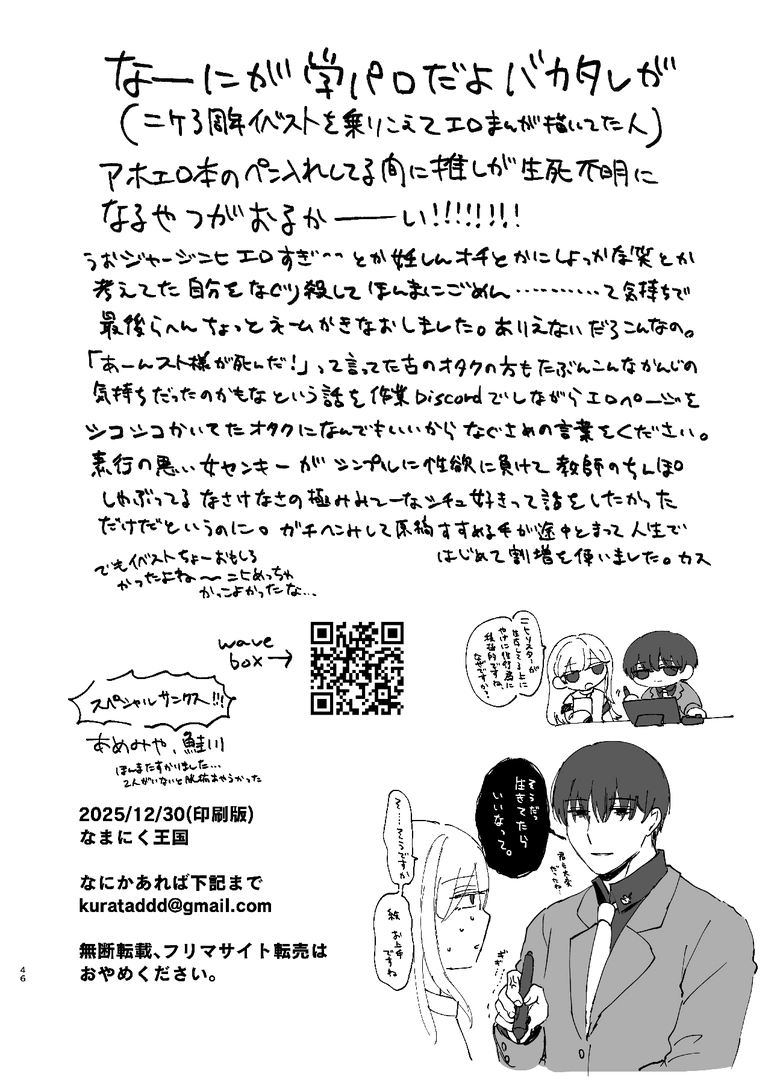 なーにが学パロだよバカタレが
(ニケ3周年イベストを乗りこえてエロまんが描いてた人)
アホエロ本のペン入れしてる間に推しが生死不明に
なるやつがおるかーーい!!!!!!!
うおジャージニヒエロすぎ〜〜とか妊しんオチとかにしよっかな笑とか
考えてた自分をなぐり殺してほんまにごめん…………って気持ちで
最後らへんちょっとネームかきなおしました。ありえないだろこんなの。
「あーんスト様が死んだ!」って言ってた古のオタクの方もたぶんこんなかんじの
気持ちだったのかもなという話を作業Discordでしながらエロページを
シコシコかいてたオタクになんでもいいからなぐさめの言葉をください。
素行の悪い女センキーがシンプルに性欲に負けて教師のちんぽ
しゃぶってるなさけなさの極みみてーなシチュ好きって話をしたかった
だけだというのに。ガチへこみして原稿すすめる手が途中とまって人生で
はじめて割増を使いました。カス
でもイベストちょーおもしろ
かったよね〜ニヒめっちゃ
かっこよかったな…
wave
box→
スペシャルサンクス!!!
あめみや、鮭川
ほんまたすかりました…
2人がいないと
2025/12/30(印刷版)
なまにく王国
なにかあれば下記まで
kurataddd@gmail.com
無断転載、フリマサイト転売は
おやめください。
ニヒリスターが
生死してる上に
やけに後作者に
積極的ですね、
なぜですか?
そうだっ
生きてたら
いいなって。
君も大変
だったね…
そ…そうですか
絵 お上手
ですね
ぎぎ…
46